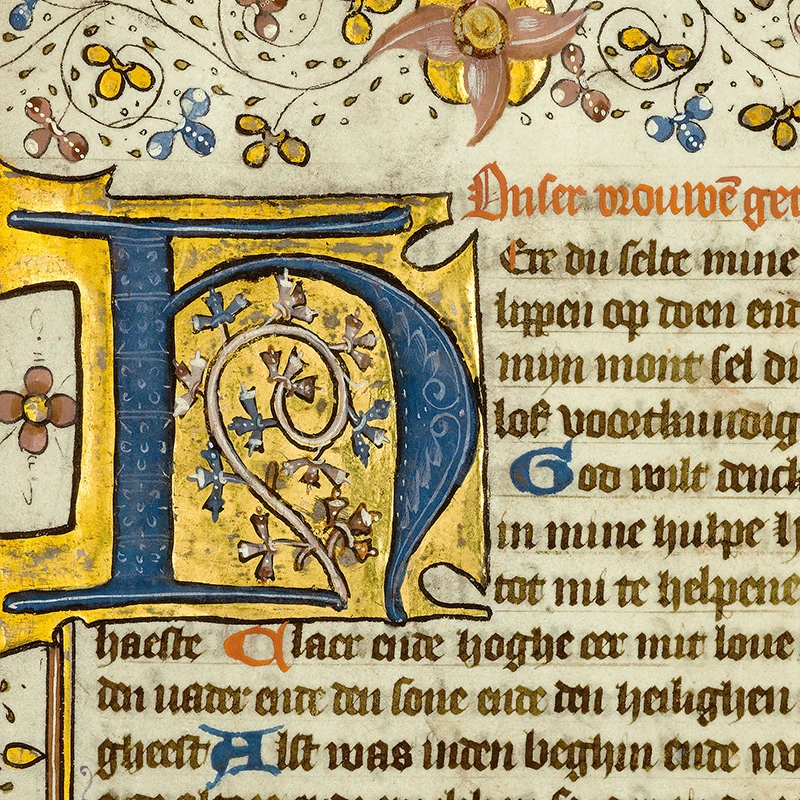 Onser vrouwē get
Ere du selte mine
lippen op doen end
mijn mont sel du
lof voortkundig
God wilt denck
in mine hulpe h
tot mi te helpene
haeste Glaer ende hoghe eer mit loue
den uader ende den sone ende den heilighen
gheest Alst was inden beghin ende nv